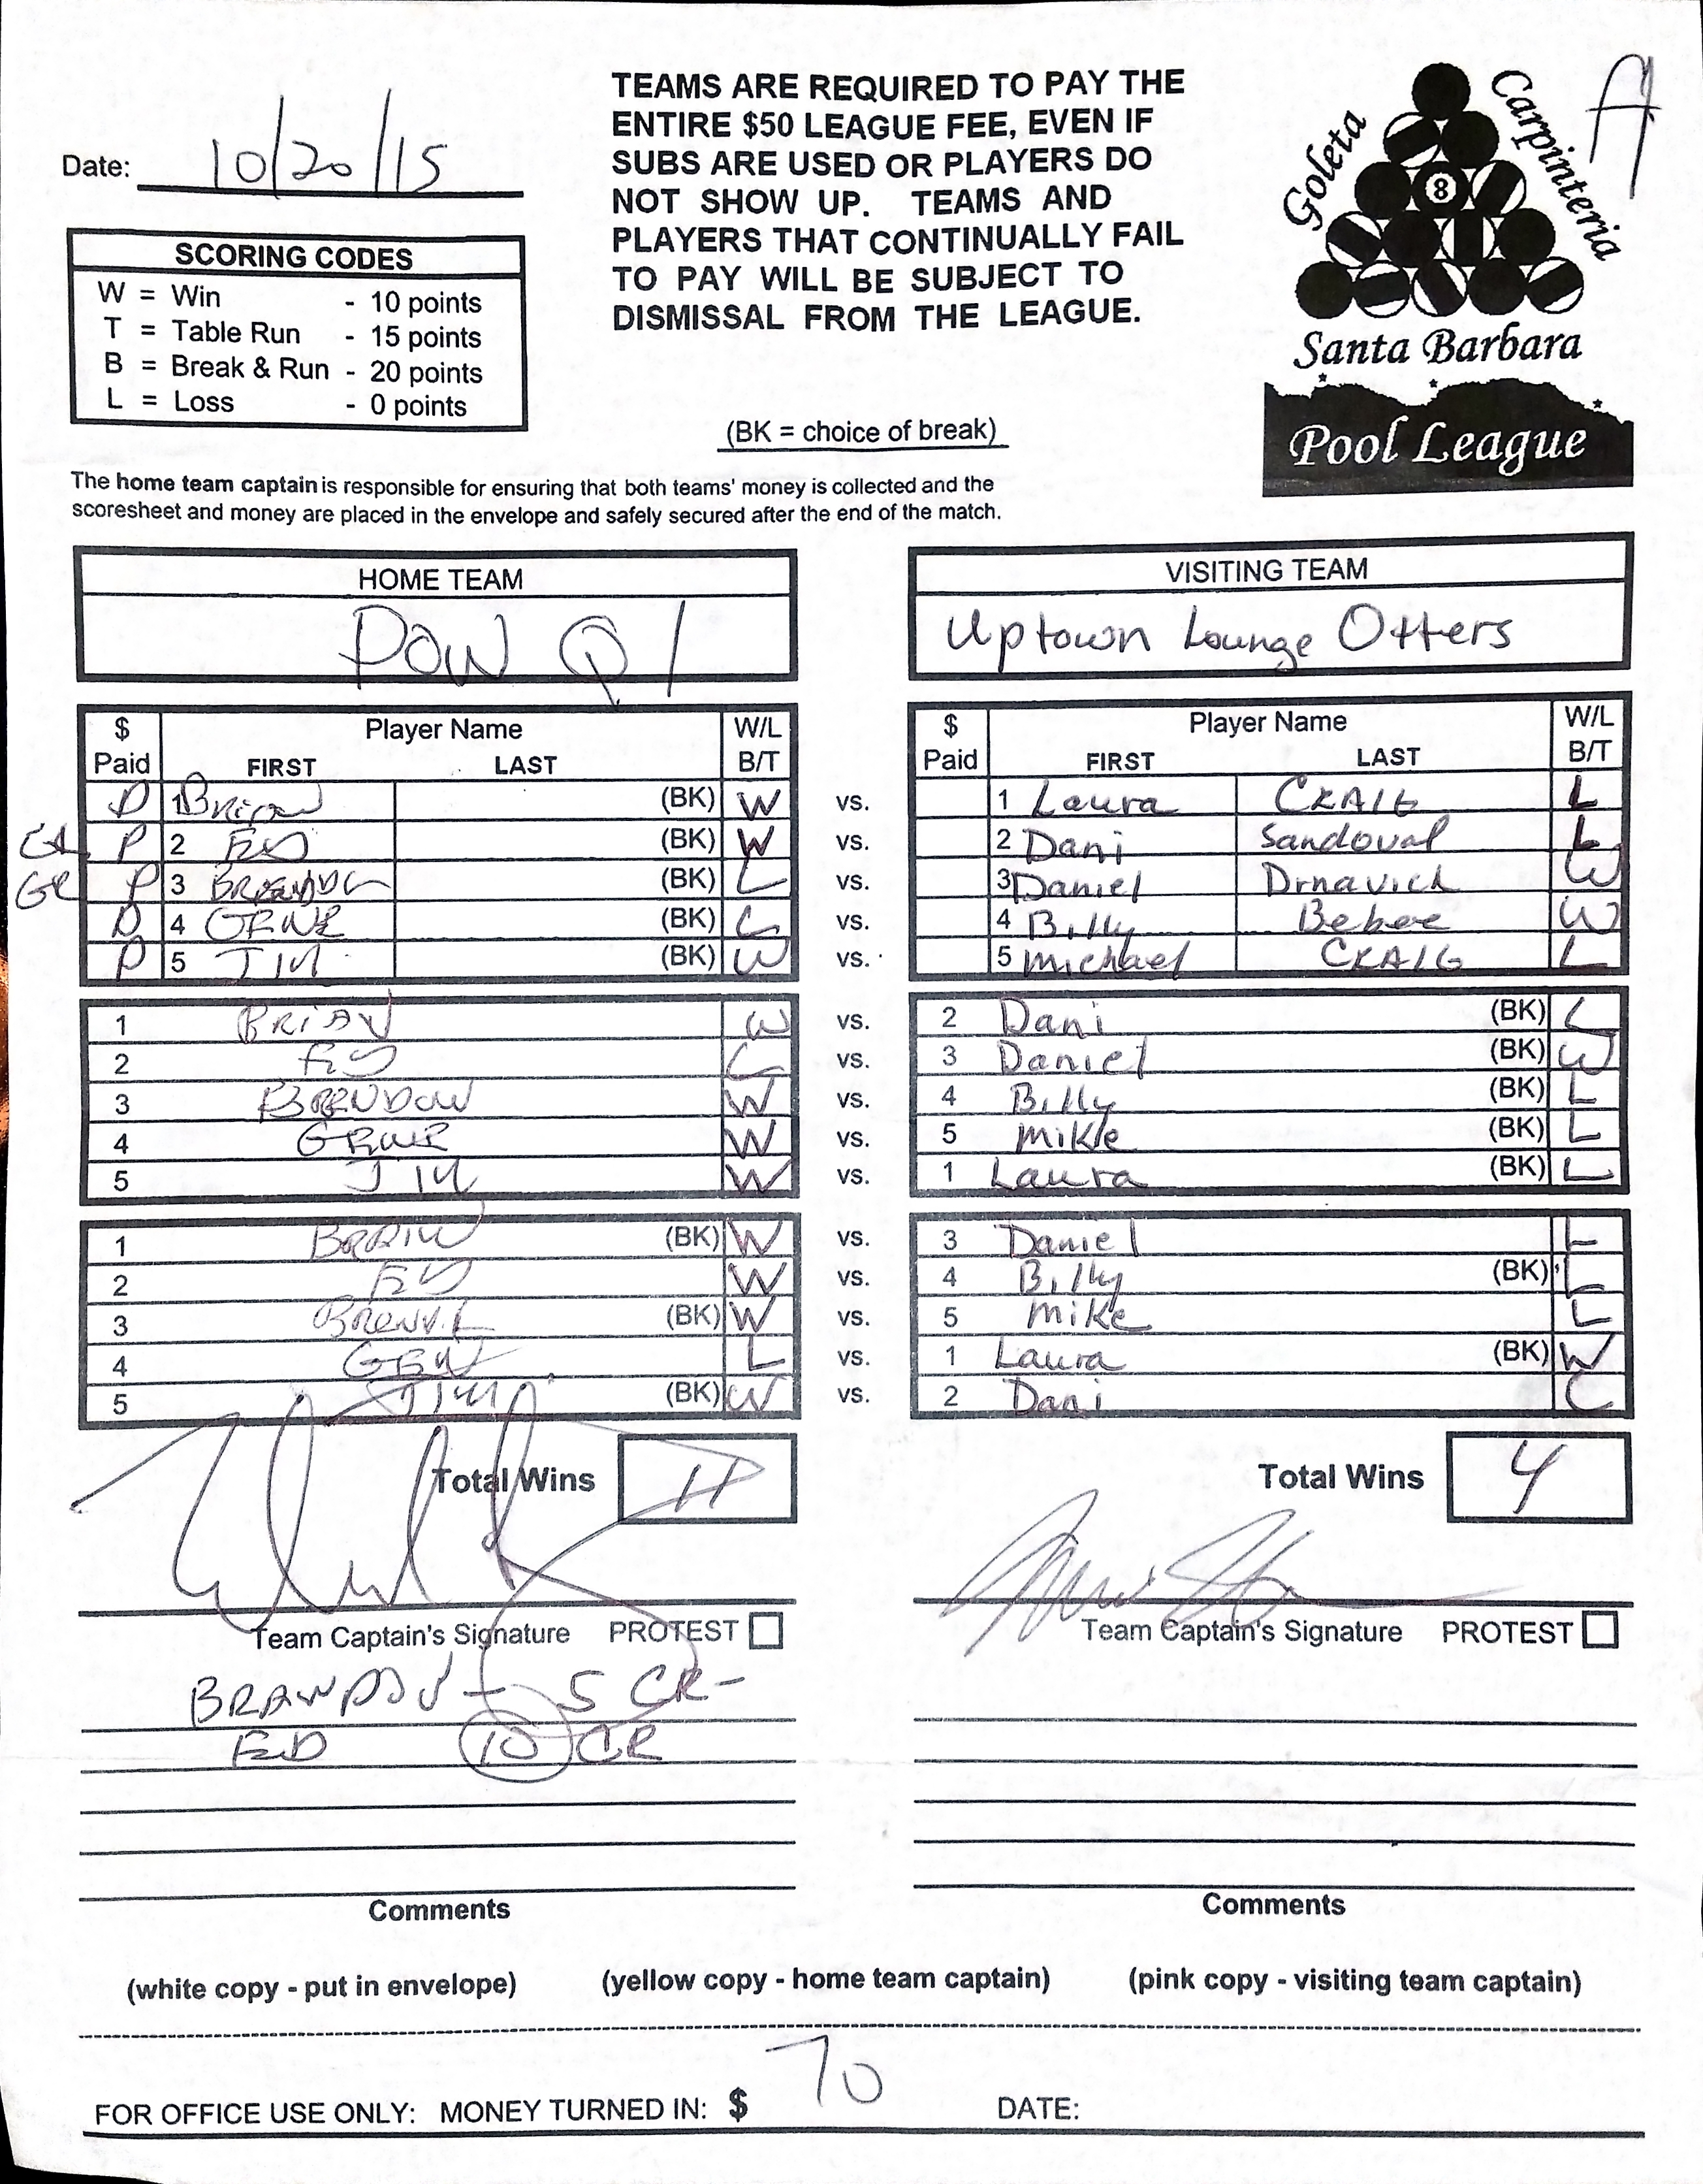 TEAMS ARE REQUIRED TO PAY THE
ENTIRE $50 LEAGUE FEE, EVEN IF
SUBS ARE USED OR PLAYERS DO
NOT SHOW UP. TEAMS AND
PLAYERS THAT CONTINUALLY FAIL
TO PAY WILL BE SUBJECT TO
DISMISSAL FROM THE LEAGUE.
Date: 10/20/15
Goleta
Carpinteria
A
8
Santa Barbara
Pool League
SCORING CODES
W = Win - 10 points
T = Table Run - 15 points
B = Break & Run - 20 points
L = Loss - 0 points
(BK = choice of break)
The home team captain is responsible for ensuring that both teams' money is collected and the
scoresheet and money are placed in the envelope and safely secured after the end of the match.
HOME TEAM VISITING TEAM
POW Q 1 Uptown Lounge Otters
$ Paid Player Name FIRST LAST W/L B/T $ Paid Player Name FIRST LAST W/L B/T
P 1 Brian (BK) W vs. 1 Laura CRAIG L
P 2 ED (BK) W vs. 2 Dani Sandoval L
P 3 (BK) L vs. 3 Daniel Drnavich W
P 4 GENE (BK) L vs. 4 Billy Bebee W
P 5 JIM (BK) W vs. 5 Michael CRAIG L
1 BRIAN W vs. 2 Dani (BK) L
2 ED L vs. 3 Daniel (BK) W
3 BRENDON W vs. 4 Billy (BK) L
4 GENE W vs. 5 Mike (BK) L
5 JIM W vs. 1 Laura (BK) L
1 BRAIN (BK) W vs. 3 Daniel L
2 ED W vs. 4 Billy (BK) L
3 (BK) W vs. 5 Mike L
4 GEN L vs. 1 Laura (BK) W
5 JIM (BK) W vs. 2 Dani L
Total Wins 11 Total Wins 4
Team Captain's Signature PROTEST Team Captain's Signature PROTEST
BRANDON - 5 CR-
ED 10 CR
Comments Comments
(white copy - put in envelope) (yellow copy - home team captain) (pink copy - visiting team captain)
FOR OFFICE USE ONLY: MONEY TURNED IN: $ 70 DATE: